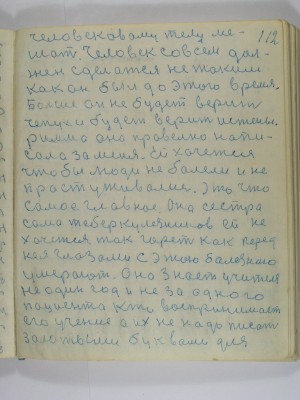 112
человеському телу ме-
шат. Человек совсем дол-
жен сделатся не таким
как он был до этого время.
Больше он не будет верит
чепухи будет верит истены.
Римма она правелно напи-
сала за меня. Ей хочется
чтобы люди не болели и не
прастуживалис. Это что
самое главное. Она сестра
сама теберкулязников ей не
хочется так гарет как перед
нея глазами с этою балезнию
умерают. Она знает учителя
не один год и не за одного
пациента кто воспринимает
его учение а их не надо писат
залотыми буквами для